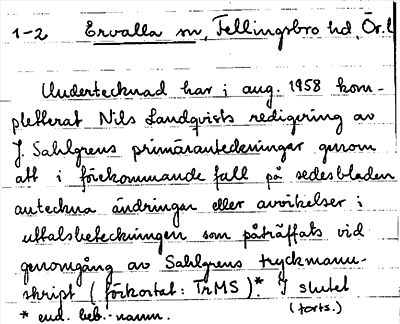 1-2 Ervalla sn, Fellingsbro hd, Ör. l
Undertecknad har i aug. 1958 kom-
pletterat Nils Landqvists redigering av
J. Sahlgrens primäranteckningar genom
att i förekommande fall på sedesbladen
anteckna ändringar eller avvikelser i
uttalsbeteckningen som påträffats vid
genomgång av Sahlgrens tryckmanu-
skript (förkortat: TrMS)*. I slutet
* end. beb.-namn. (forts.)